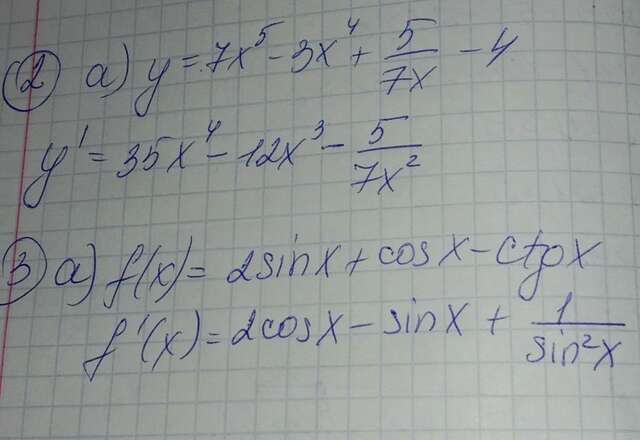 ② a) y = 7x⁵ - 3x⁴ + 5/7x - 4
y' = 35x⁴ - 12x³ - 5/7x²
③ a) f(x) = 2sinx + cosx - ctgx
f'(x) = 2cosx - sinx + 1/sin²x